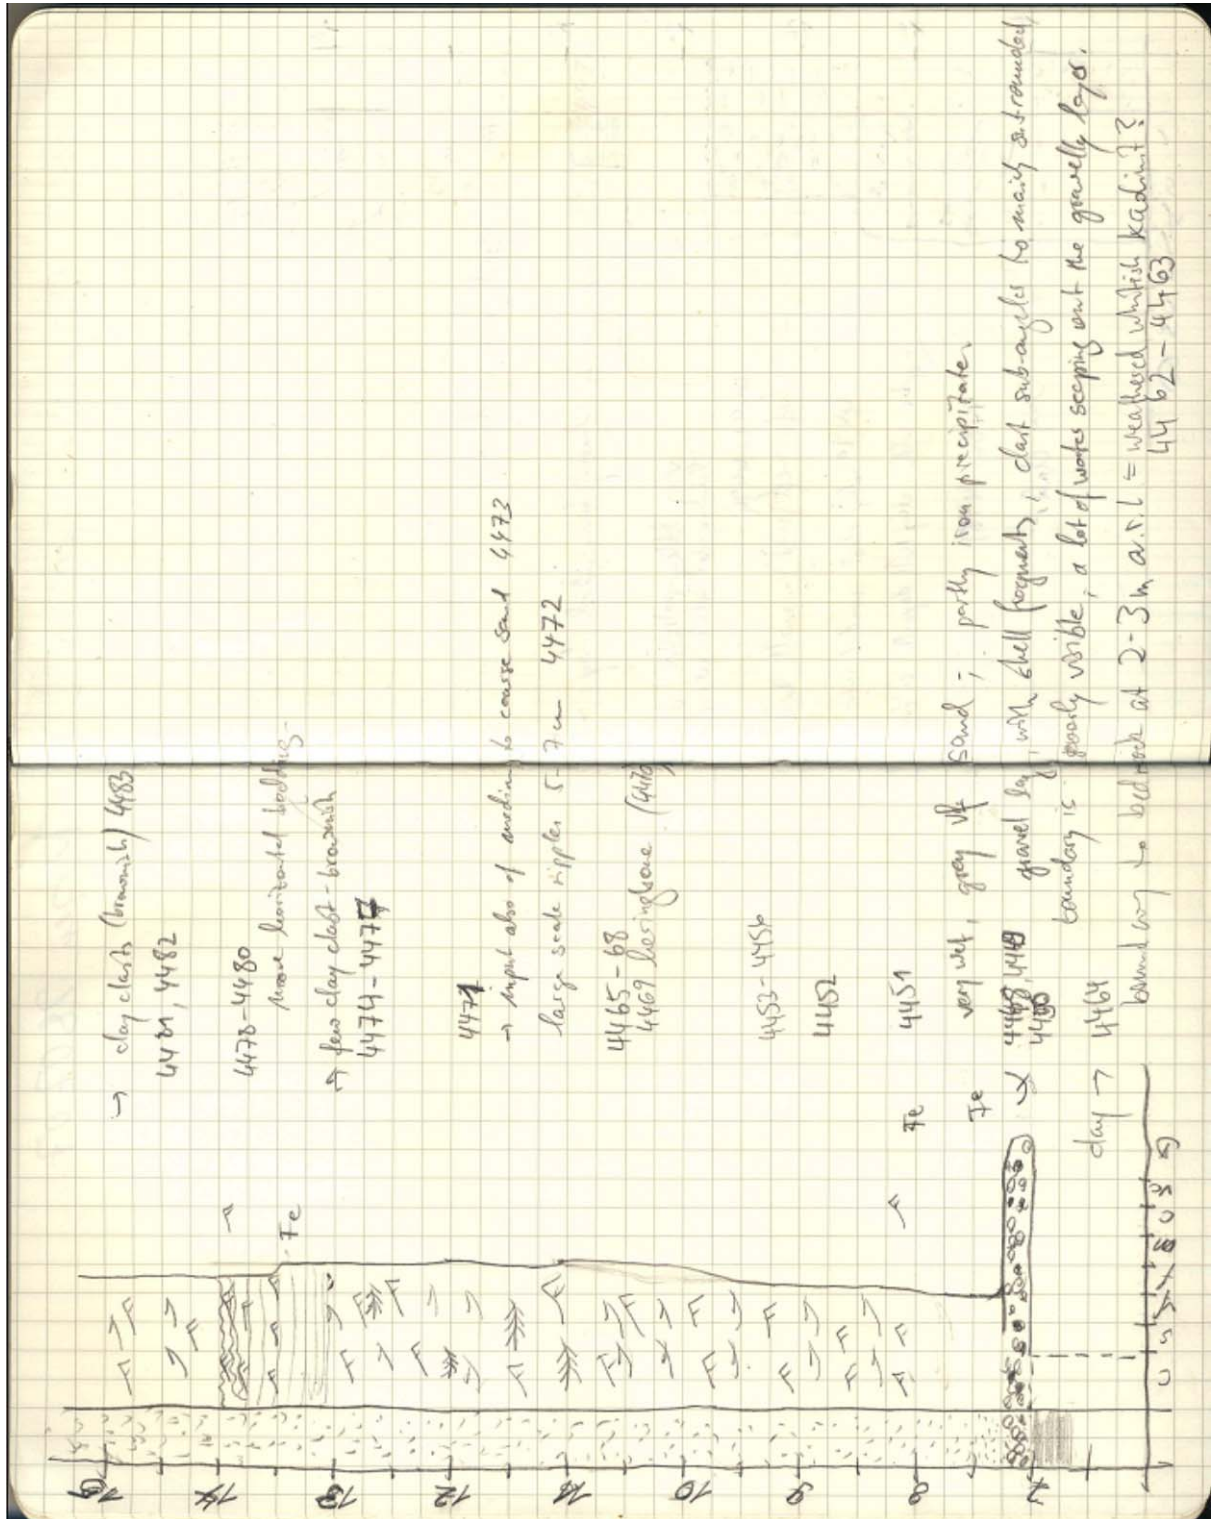 15
→ clay clasts (brownish) 4483
4481, 4482
14
4478-4480
more horizontal bedding
Fe
13
→ few clay clast - brownish
4474 - 4477
12
4471
→ input also of medium to coarse sand 4473
11
large scale ripples 5-7 cm 4472
4465-68
4469 heringbone (4470)
10
4453-4456
9
4452
8
Fe
4451
Fe
very wet, grey vf sand; partly iron precipitate.
7
gravel lag, with shell fragments, clast sub-angular to mainly subrounded,
boundary is poorly visible, a lot of water seeping out the gravelly layer.
clay → 4464
boundary to bedrock at 2-3 m a.r.l = weathered whitish
4462 - 4463